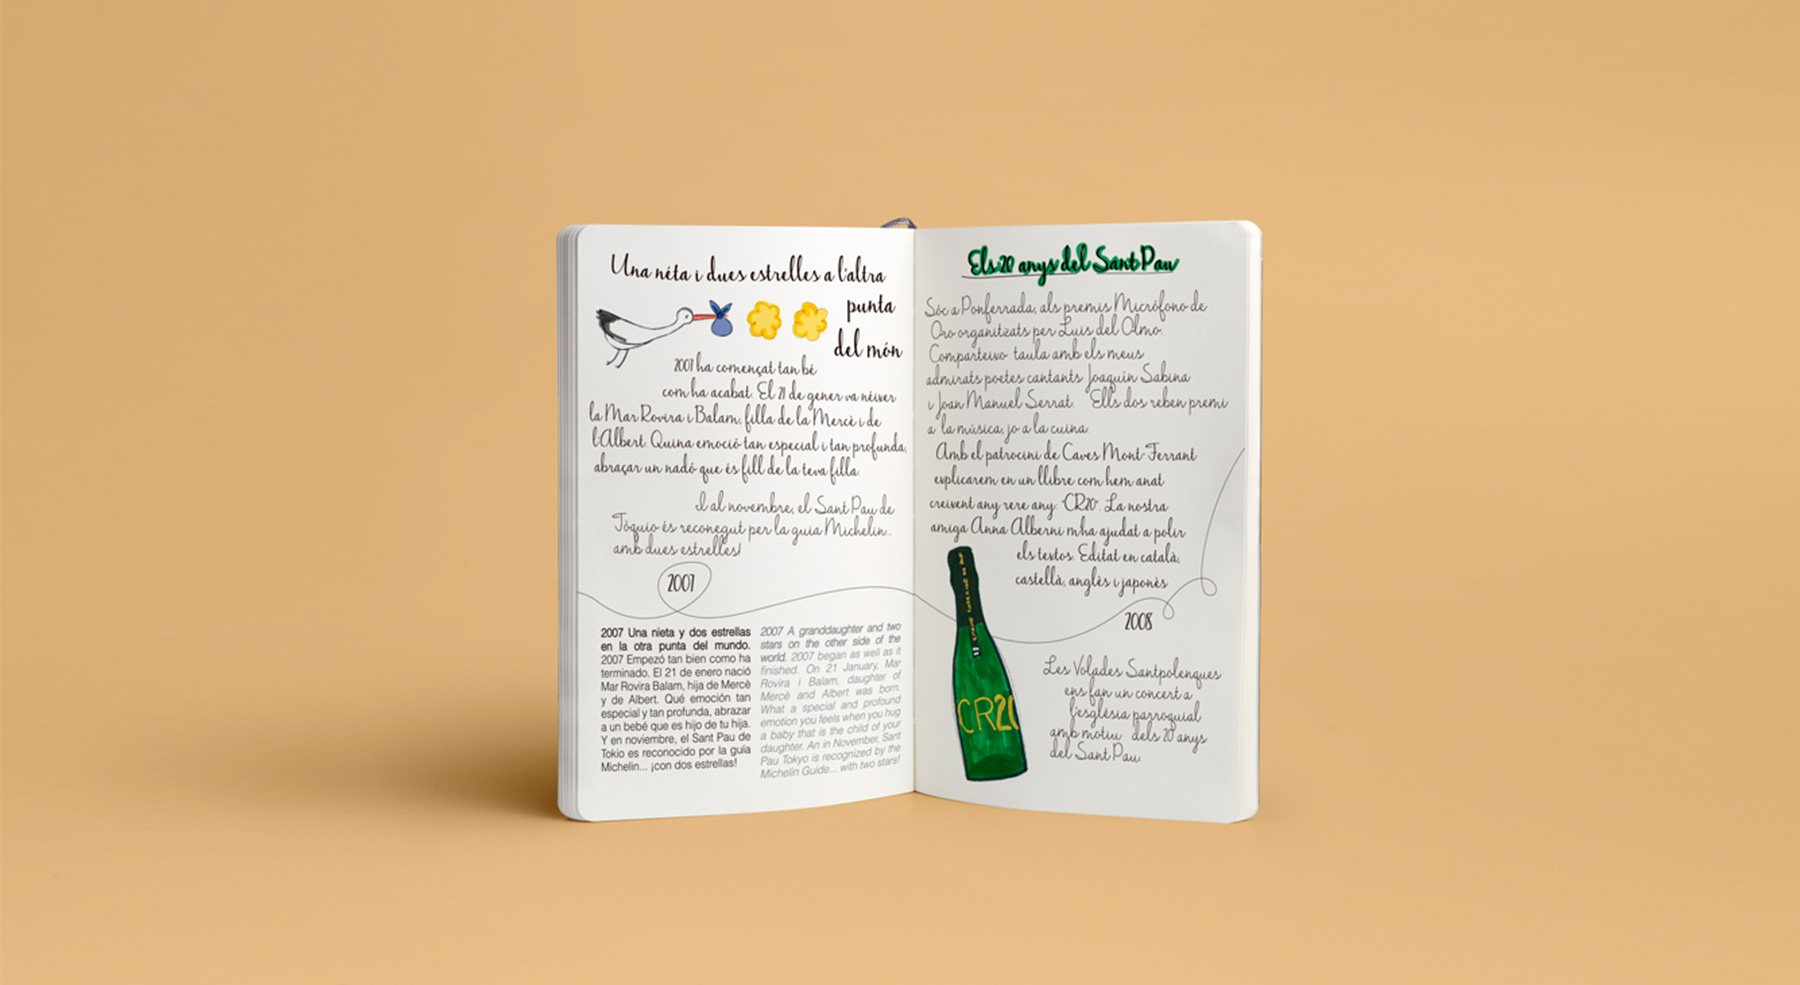 Una néta i dues estrelles a l'altra
punta
del món
2007 ha començat tan bé
com ha acabat. El 21 de gener va néixer
la Mar Rovira i Balam, filla de la Mercè i de
l'Albert. Quina emoció tan especial i tan profunda,
abraçar un nadó que és fill de la teva filla.
I al novembre, el Sant Pau de
Tòquio és reconegut per la guia Michelin...
amb dues estrelles!
2007
2007 Una nieta y dos estrellas
en la otra punta del mundo.
2007 Empezó tan bien como ha
terminado. El 21 de enero nació
Mar Rovira Balam, hija de Mercè
y de Albert. Qué emoción tan
especial y tan profunda, abrazar
a un bebé que es hijo de tu hija.
Y en noviembre, el Sant Pau de
Tokio es reconocido por la guía
Michelin... ¡con dos estrellas!
2007 A granddaughter and two
stars on the other side of the
world. 2007 began as well as it
finished. On 21 January, Mar
Rovira i Balam, daughter of
Mercè and Albert was born.
What a special and profound
emotion you feels when you hug
a baby that is the child of your
daughter. An in November, Sant
Pau Tokyo is recognized by the
Michelin Guide... with two stars!
Els 20 anys del Sant Pau
Sóc a Ponferrada, als premis Micrófono de
Oro organitzats per Luis del Olmo.
Comparteixo taula amb els meus
admirats poetes cantants Joaquín Sabina
i Joan Manuel Serrat. Ells dos reben premi
a la música, jo a la cuina.
Amb el patrocini de Caves Mont-Ferrant
explicarem en un llibre com hem anat
creixent any rere any: "CR20". La nostra
amiga Anna Alberni m'ha ajudat a polir
els textos. Editat en català,
castellà, anglès i japonès
2008
CR20
Les Volades Santpolenques
ens fan un concert a
l'església parroquial
amb motiu dels 20 anys
del Sant Pau.